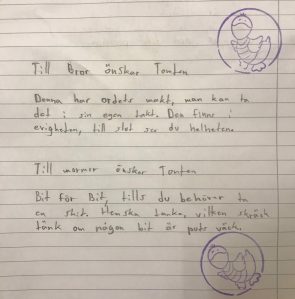 Till Bror önskar Tomten
Denna har ordets makt, man kan ta
det i sin egen takt. Den finns i
evigheten, till slut ser du helheten.
Till mormor önskar Tomten
Bit för Bit, tills du behöver ta
en shit. Hemska tanke, vilken skräck
tänk om någon bit är puts väck.